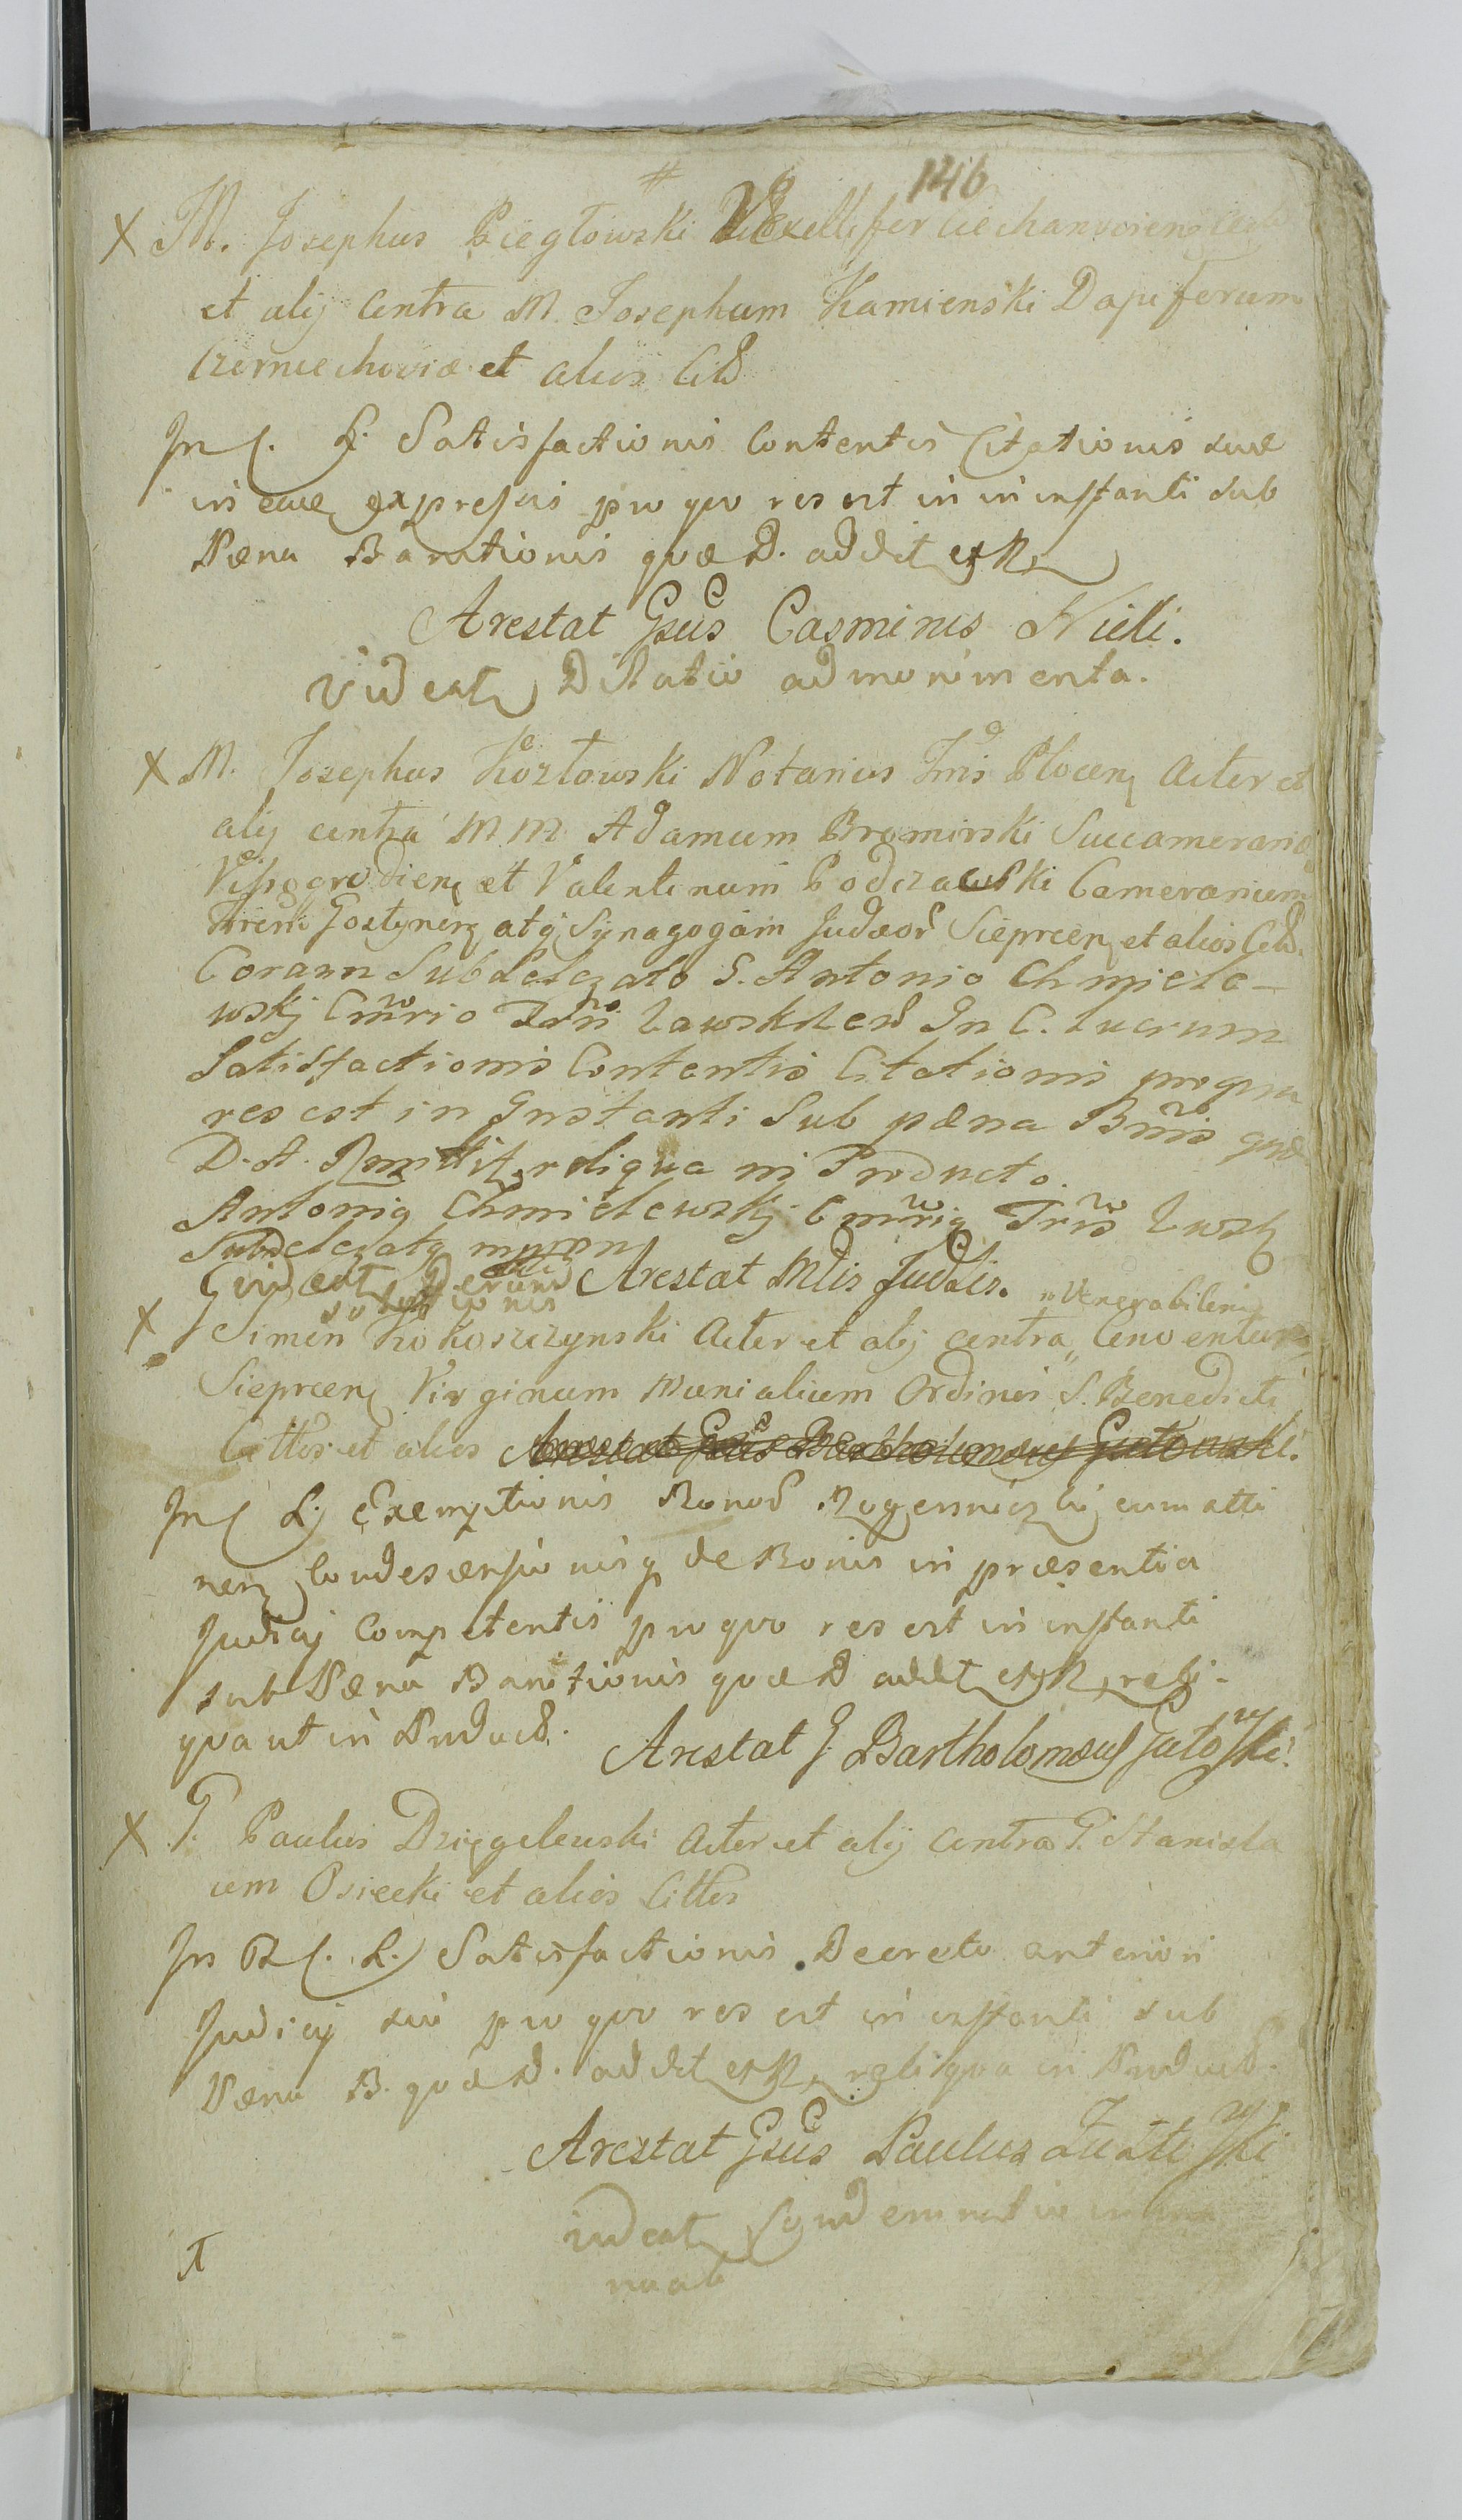 #
146
X M. Josephus Pięgłowski Vexillifer Ciechanoviens
et alij Contra M. Josephum Kamienski Dapiferum
Czerniechoviæ et alios Citd
In C. L. Satisfactionis Contentis Citationis suæ
in eave expressis pro quo res est in instanti sub
Pæna Banitionis quæ D. addit et R
Arestat Gsus Casmirus Nieli.
Videat Dilatio ad monimenta.
X M. Josephus Kozłowski Notarius Tris Plocen Actor et
alij contra MM Adamum Bromirski Succamerariũ
Vissogrodien et Valentinum Podczaski Camerarium
Trreni Gostynen atq Synagogam Judæor Sieprcen et alios Citd.
Coram Subdelegato S. Antonio Chmiele-
wskj Cmrio Tris Zawskrzen In C. Lucrum
Satisfactionis Contentis Citationis pro quo
res est in Instanti Sub pæna Bnis quæ
D. A. Rmittit reliqua in Producto.
Antonig Chmielewskj Cmrig Tris Zwsk
Subdelegatg mppn
Videat Arestat Mdis Judlis. "Venerabilem
solutionis
X Simon Kokoszczynski Actor et alij contra " Conventum
Sieprcen Virginum Monialium Ordinis S. Benedicti
Cittos et alios Arestat Gsus Bartholomeus Gutowski.
In C L. Exemptionis Bonor cum atti
nen Condescensionisq de Bonis in præsentia
Judicij Competentis pro quo res est in instanti
sub Pæna Banitionis quæ D addit et R reli-
qua ut in Product. Arestat G. Bartholomæus Guto wski.
X G. Paulus Dzięgelewski Actor et alij Contra G. Stanisla
um Osiecki et alios Cittos
In R C. L. Satisfactionis Decreto anteriori
Judicij sui pro quo res est in instanti sub
Pæna B. quæ D. addit et R reliqua in Product.
Arestat Gsus Paulus
videat Condemnatio